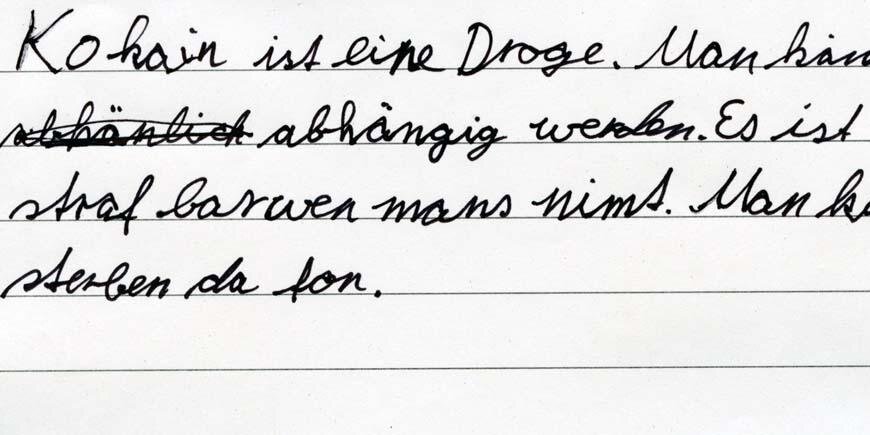 Kokain ist eine Droge. Man kan
abhänlich abhängig werden. Es ist
straf bar wen mans nimt. Man k
sterben da fon.